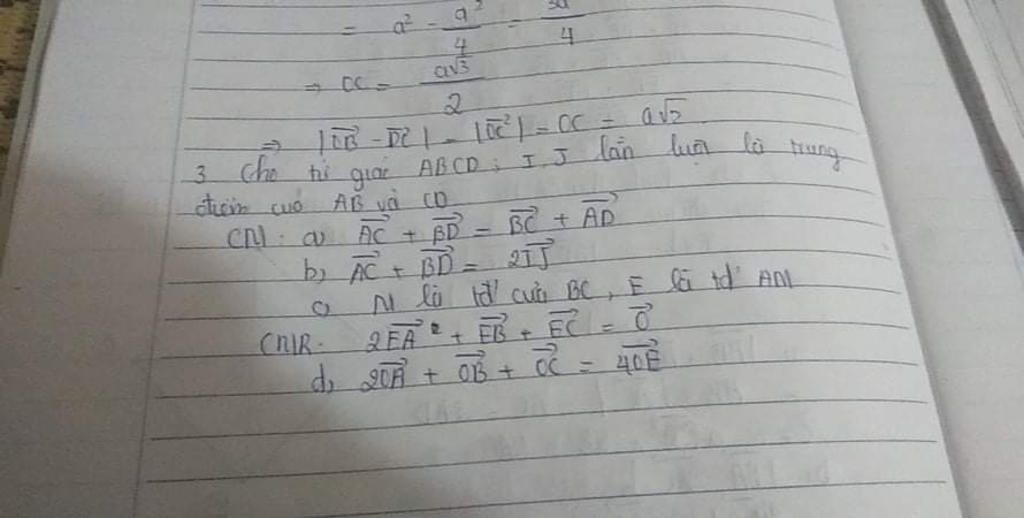 = a² - a²/4 = 3a/4
⇒ OC = a√3/2
⇒ |OB - DC| = |OC| = OC = a√2
3 Cho tứ giác ABCD; I J lần lượt là trung
điểm của AB và CD
CM: a) AC + BD = BC + AD
b) AC + BD = 2IJ
c) M là tđ của BC, E là tđ AM
CMR: 2EA + EB + EC = O
d) 2OA + OB + OC = 4OE